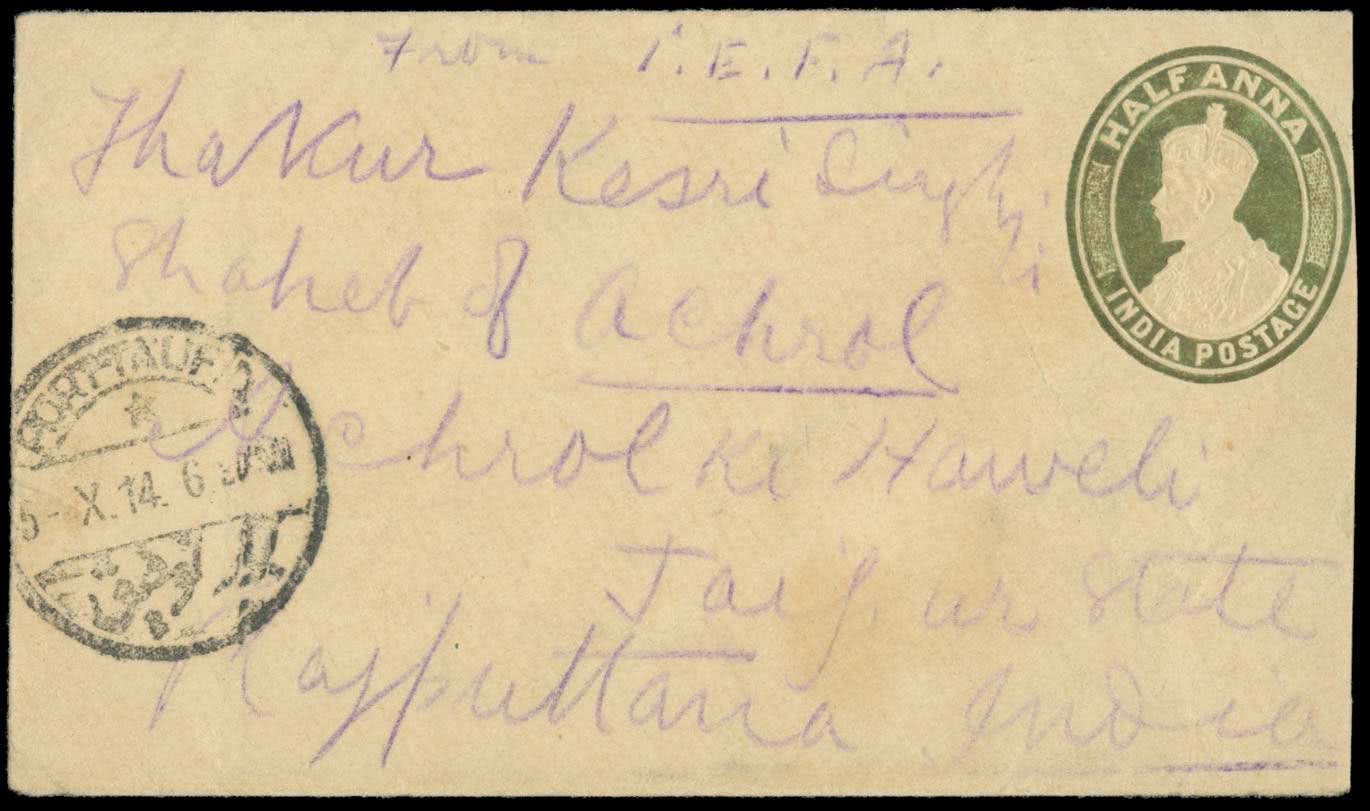 From I.E.F.A.
Thakur Kesri Singh ji
Shaheb of Achrol
Achrol Ki Haweli
Jaipur State
Rajputtana India
HALF ANNA
INDIA POSTAGE
PORT-TAUFIQ
5-X.14. 6